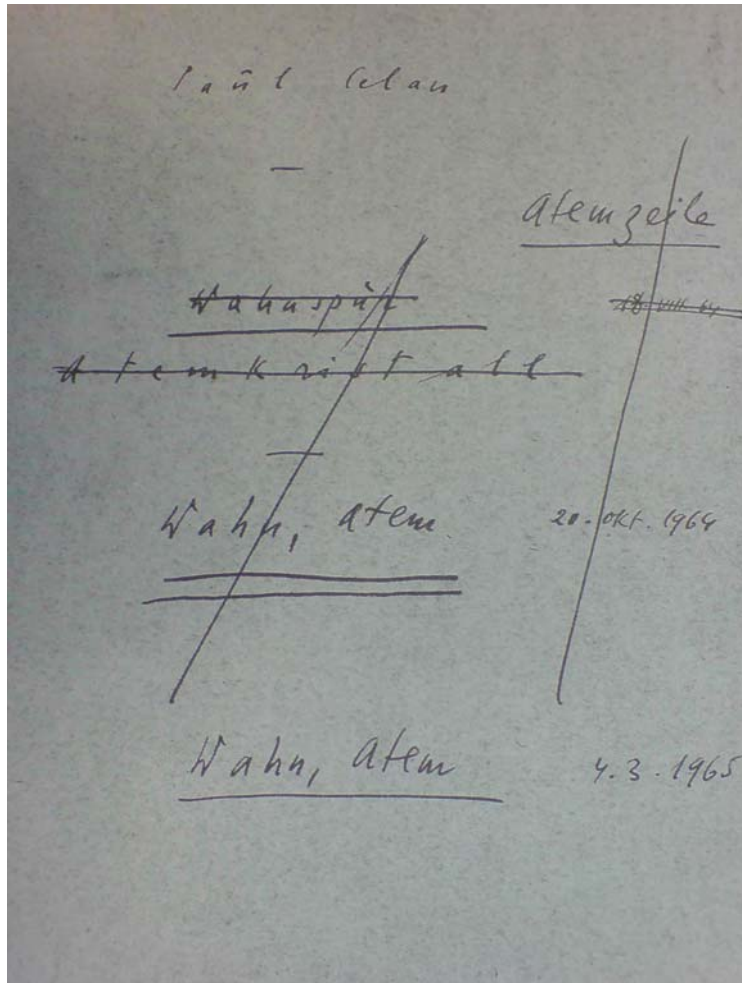 Paul Celan
Atemzeile
Wahnspur
18. VIII 64
Atemkristall
Wahn, Atem
20. Okt. 1964
Wahn, Atem
4.3.1965